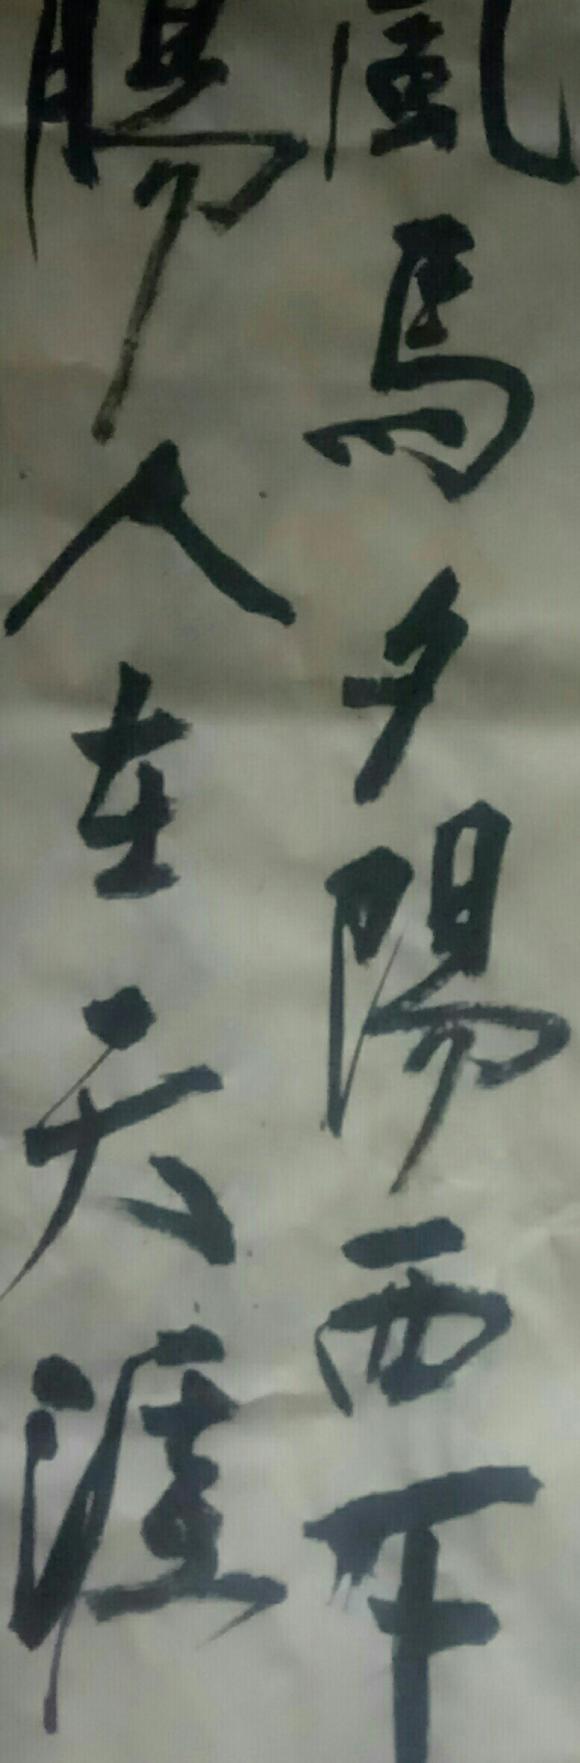 風馬夕陽西下
腸人在天涯